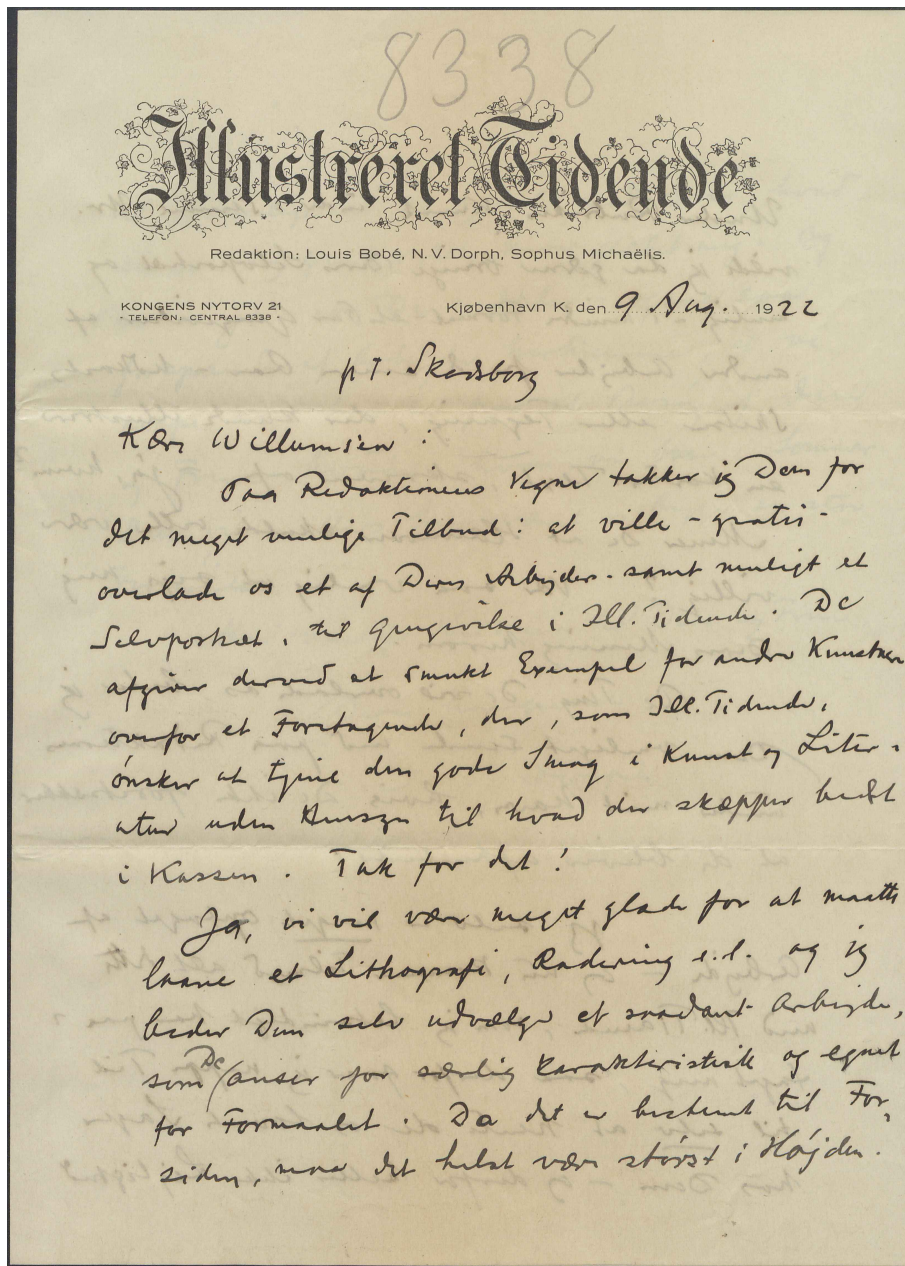 8338
Illustreret Tidende
Redaktion: Louis Bobé, N. V. Dorph, Sophus Michaëlis.
KONGENS NYTORV 21
- TELEFON: CENTRAL 8338 -
Kjøbenhavn K. den 9 Aug. 1922
p t. Skodsborg
Kære Willumsen:
Paa Redaktionens Vegne takker jeg Dem for
det meget venlige Tilbud: at ville - gratis -
overlade os et af Deres Arbejder - samt muligt et
Selvportræt, til Gengivelse i Ill. Tidende. De
afgiver derved et smukt Exempel for andre Kunstnere
overfor et Foretagende, der, som Ill. Tidende,
ønsker at tjene den gode Smag i Kunst og Liter-
atur uden Hensyn til hvad der skæpper bedst
i Kassen. Tak for det!
Ja, vi vil være meget glade for at maatte
laane et Lithografi, Radering e.l. og jeg
beder Dem selv udvælge et saadant Arbejde,
som De anser for særlig karakteristisk og egnet
for Formaalet. Da det er bestemt til For-
siden, maa det helst være størst i Højden.